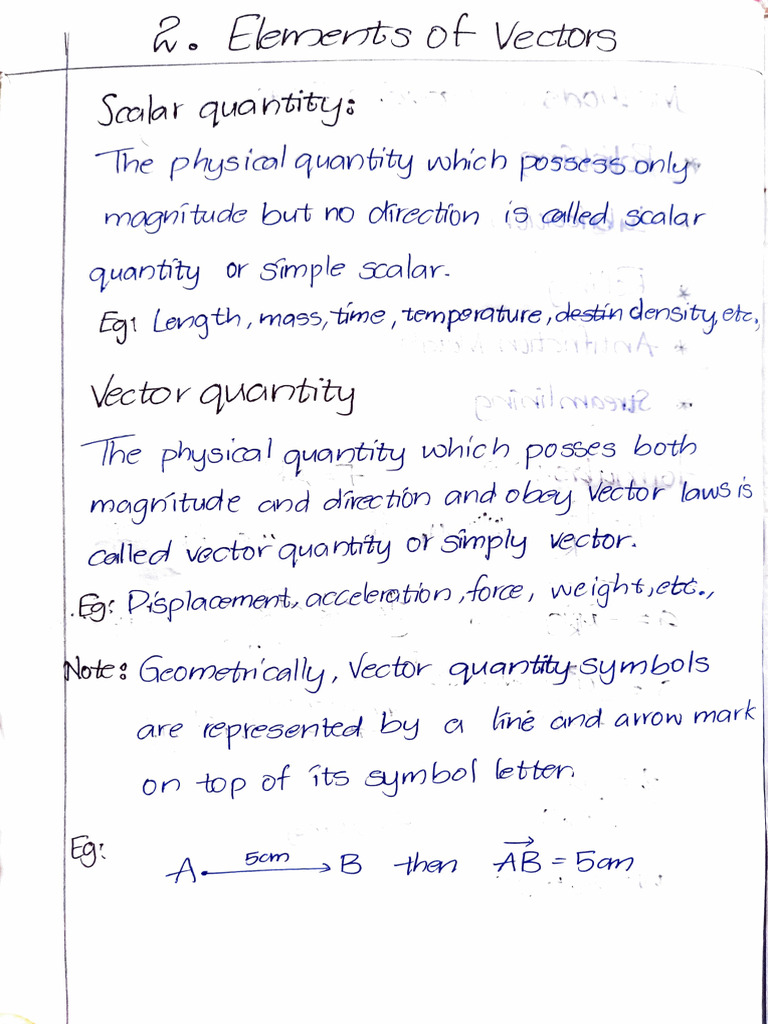 2. Elements of Vectors
Scalar quantity:
The physical quantity which possess only
magnitude but no direction is called scalar
quantity or simple scalar.
Eg: Length, mass, time, temperature, destin density, etc.,
Vector quantity
The physical quantity which posses both
magnitude and direction and obey vector laws is
called vector quantity or simply vector.
Eg: Displacement, acceleration, force, weight, etc.,
Note: Geometrically, Vector quantity symbols
are represented by a line and arrow mark
on top of its symbol letter.
Eg:
A 5cm B then \overrightarrow{AB} = 5cm